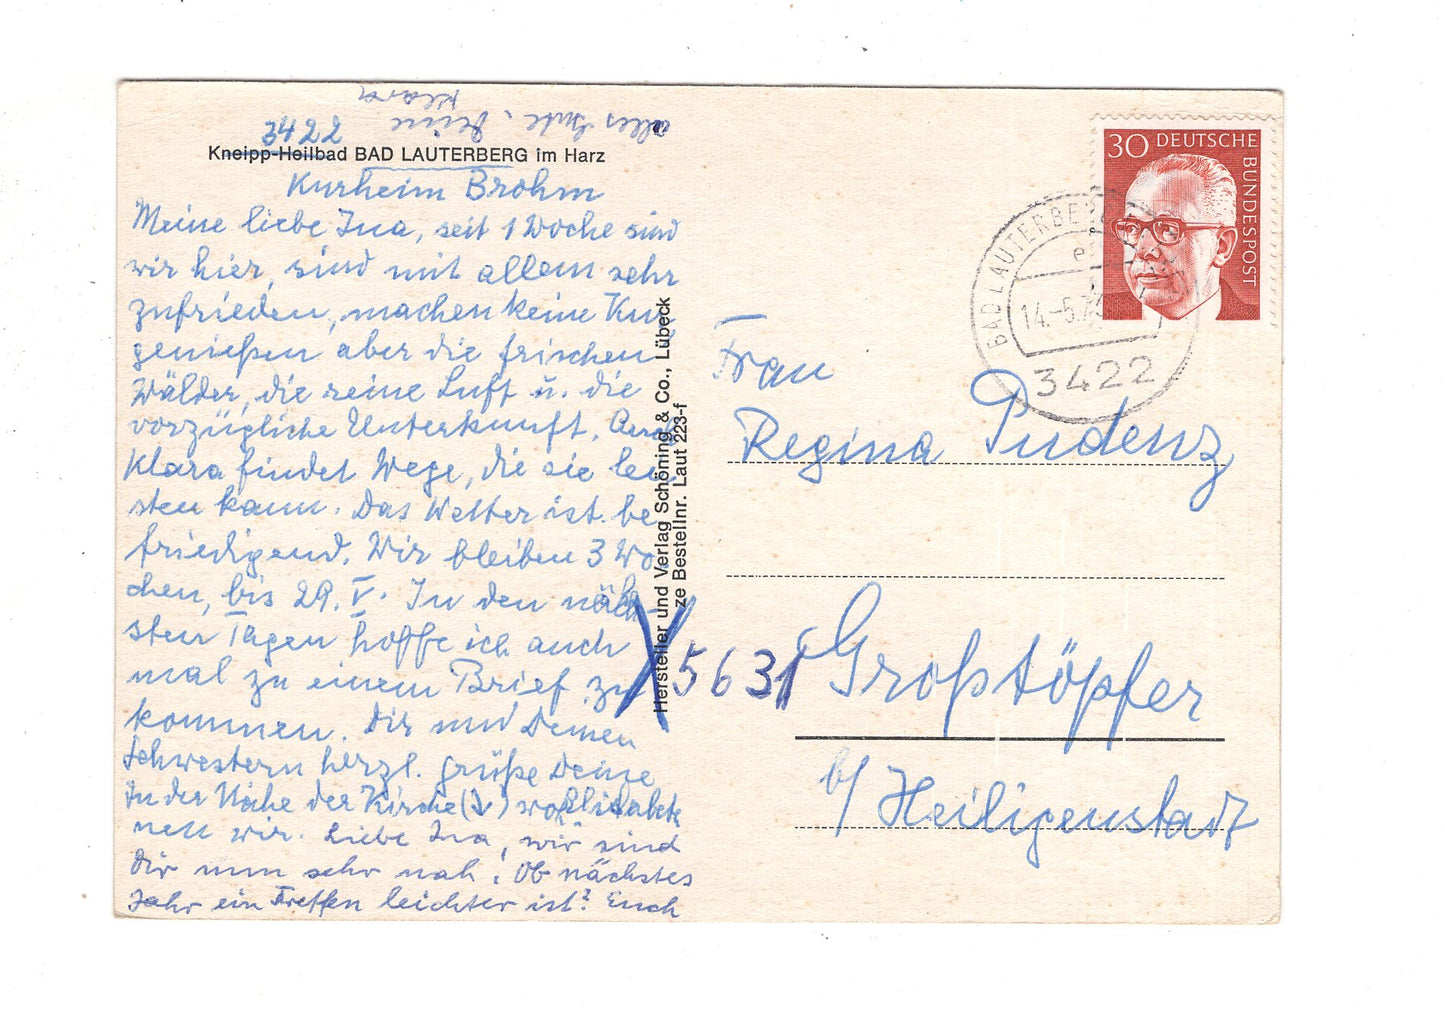 alles Gute, Deine
Klara
3422
Kneipp-Heilbad BAD LAUTERBERG im Harz
Kurheim Brohm
Meine liebe Ina, seit 1 Woche sind
wir hier, sind mit allem sehr
zufrieden, machen keine Kur
genießen aber die frischen
Wälder, die reine Luft u. die
vorzügliche Unterkunft. Auch
Klara findet Wege, die sie lei
sten kann. Das Wetter ist be
friedigend. Wir bleiben 3 Wo-
chen, bis 29. V. In den näch-
sten Tagen hoffe ich auch
mal zu einem Brief zu
kommen. Dir und Deinen
Schwestern herzl. Grüße Deine
In der Nähe der Kirche Elisabeth
nen wir. Liebe Ina, wir sind
Dir nun sehr nah! Ob nächstes
Jahr ein Treffen leichter ist? Euch
Hersteller und Verlag Schöning & Co., Lübeck
ze Bestellnr. Laut 223-f
30 DEUTSCHE
BUNDESPOST
BAD LAUTERBERG
14.-5.73
3422
Frau
Regina Pudenz
X 5631 Großtöpfer
b/ Heiligenstadt